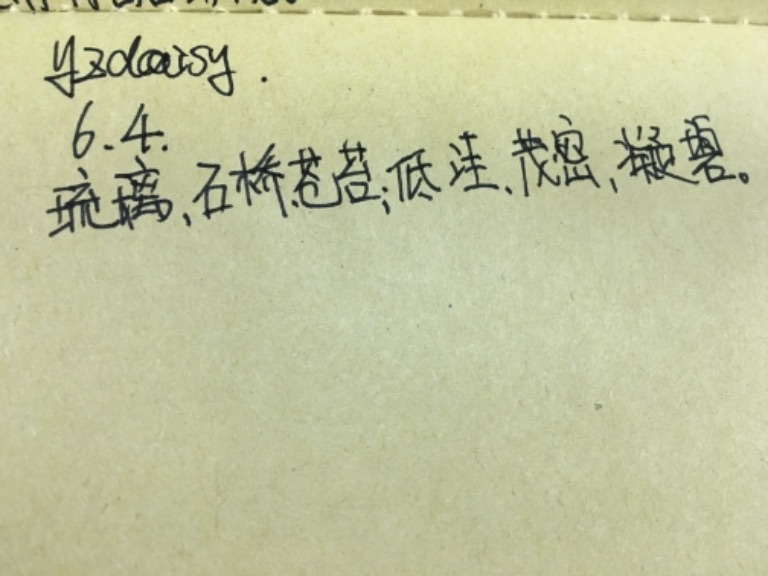 yzdaisy.
6.4.
琉璃、石桥、苍苔、低洼、茂密、凝碧。